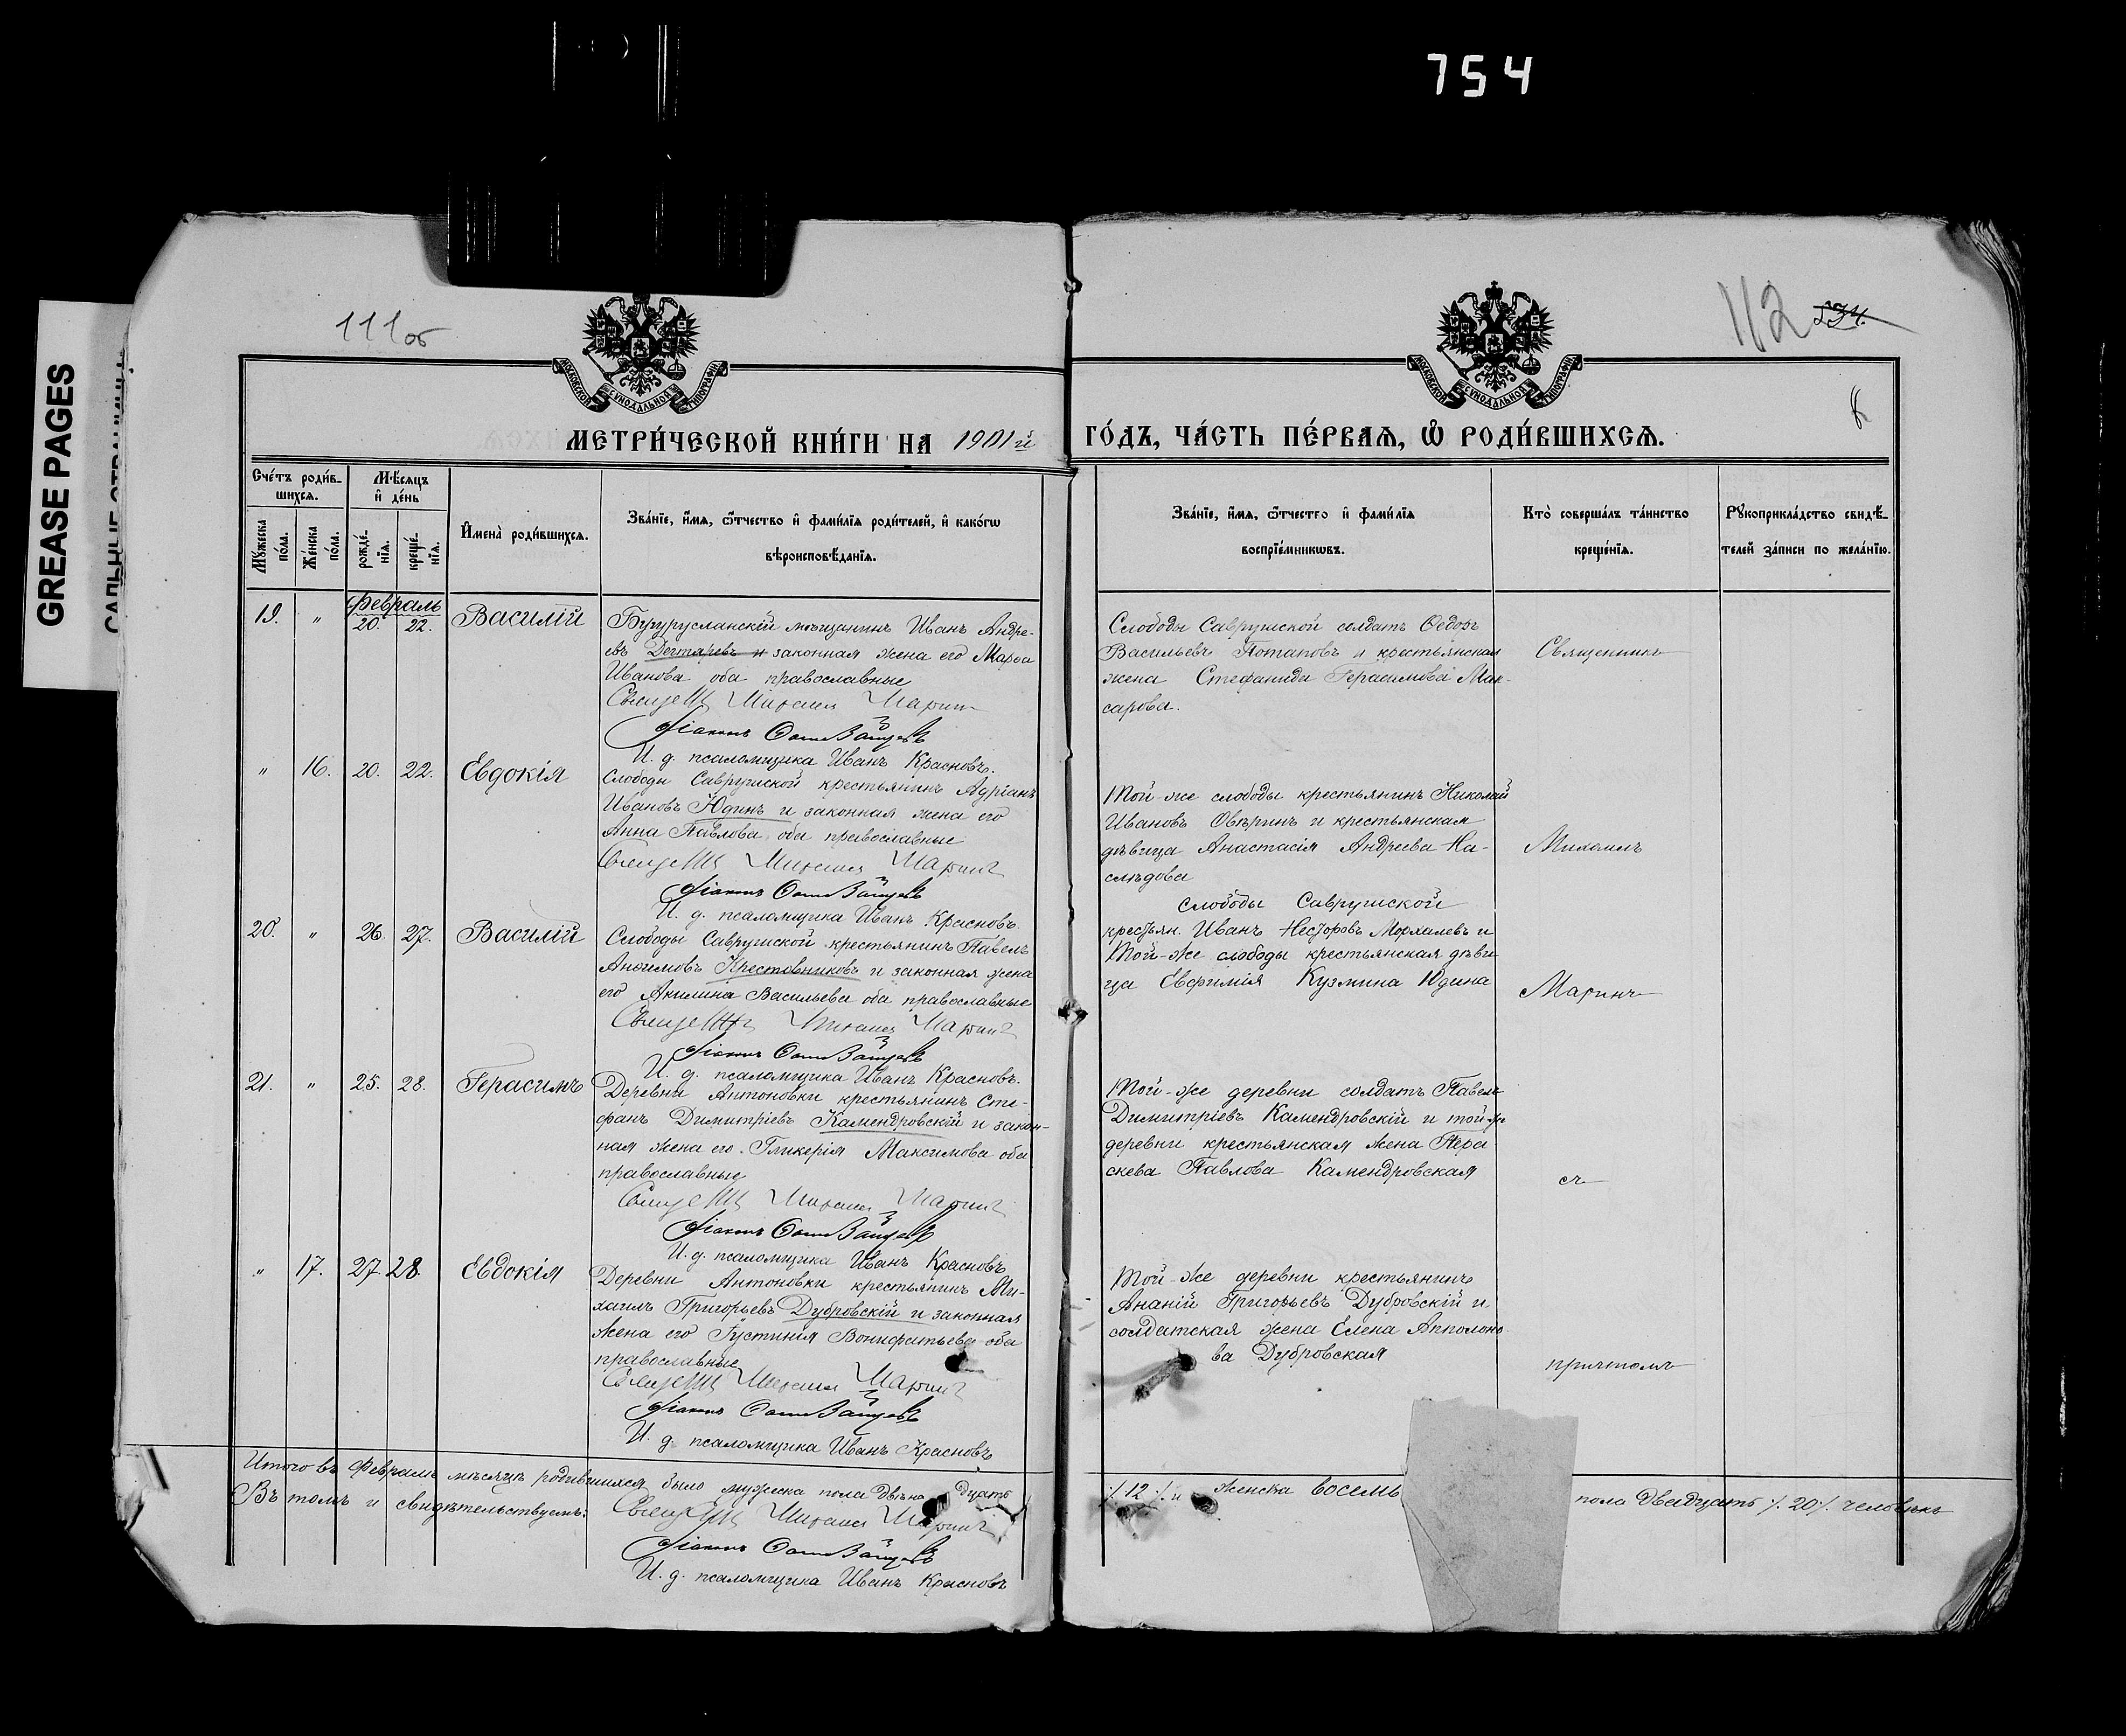 754
GREASE PAGES
111об
112
234.
МОСКОВСКОЙ СѴНОДАЛЬНОЙ ТИПОГРАФІИ
МОСКОВСКОЙ СѴНОДАЛЬНОЙ ТИПОГРАФІИ
МЕТРИ́ЧЕСКОЙ КНИ́ГИ НА 1901й ГО́ДЪ, ЧА́СТЬ ПЕ́РВАѦ, Ѽ РОДИ́ВШИХСѦ.
Сче́тъ роди́вшихсѧ.
Мѣ́сѧцъ и҆ де́нь
Мꙋ́жеска по́ла.
Же́нска по́ла.
рожде́нїѧ.
креще́нїѧ.
И҆мена̀ роди́вшихсѧ.
Зва́нїе, и҆́мѧ, ѻ҆́тчество и҆ фами́лїѧ роди́телей, и҆ како́гѡ
вѣроисповѣ́данїѧ.
Зва́нїе, и҆́мѧ, ѻ҆́тчество и҆ фами́лїѧ
воспрїе́мникѡвъ.
Кто̀ соверша́лъ та́инство
креще́нїѧ.
Рꙋкоприкла́дство свидѣ́телей за́писи по жела́нїю.
Февраль
19. " 20. 22. Василій
Бугурусланскій мѣщанинъ Иванъ Андре-
евъ Дегтяревъ и законная жена его Марѳа
Иванова оба православные
Священ Михаилъ Маринъ
Діаконъ Зайцевъ
И. д. псаломщика Иванъ Красновъ.
Слободы Саврушской солдатъ Ѳедоръ
Васильевъ Потаповъ и крестьянская
жена Стефанида Герасимова Мак-
сарова.
Священникъ
" 16. 20. 22. Евдокія
Слободы Саврушской крестьянинъ Адріанъ
Ивановъ Юдинъ и законная жена его
Анна Павлова, оба православные
Священ Михаилъ Маринъ
Діаконъ Зайцевъ
И. д. псаломщика Иванъ Красновъ.
Той-же слободы крестьянинъ Николай
Ивановъ Овѣринъ и крестьянская
дѣвица Анастасія Андреева На-
слѣдова
Михаилъ
20. " 26. 27. Василій
Слободы Саврушской крестьянинъ Павелъ
Анѳимовъ Крестовниковъ и законная жена
его Акилина Васильева оба православные
Священ Михаилъ Маринъ
Діаконъ Зайцевъ
И. д. псаломщика Иванъ Красновъ.
слободы Саврушской
крестьян. Иванъ Несторовъ Моржалевъ и
Той-же слободы крестьянская дѣви-
ца Евфимія Кузмина Юдина
Маринъ
21. " 25. 28. Герасимъ
Деревни Антоновки крестьянинъ Сте-
фанъ Димитріевъ Камендровскій и закон-
ная жена его Гликерія Максимова оба
православные
Священ Михаилъ Маринъ
Діаконъ Зайцевъ
И. д. псаломщика Иванъ Красновъ
Той-же деревни солдатъ Павелъ
Димитріевъ Камендровскій и той-же
деревни крестьянская жена Пара
скева Павлова Камендровская
съ
" 17. 27. 28. Евдокія
Деревни Антоновки крестьянинъ Ми-
хаилъ Григорьевъ Дубровскій и законная
жена его Іустинія Вонифатьева оба
православные
Священ Михаилъ Маринъ
Діаконъ Зайцевъ
И. д. псаломщика Иванъ Красновъ
Той-же деревни крестьянинъ
Ананій Григорьевъ Дубровскій и
солдатская жена Елена Апполоно
ва Дубровская
причтомъ
Итого въ Февралѣ мѣсяцѣ родившихся было мужеска пола двѣнадцать ./. 12 ./. и женска восемь пола двадцать ./. 20 ./. человѣкъ
Въ томъ и свидѣтельствуемъ:
Священ Михаилъ Маринъ
Діаконъ Зайцевъ
И. д. псаломщика Иванъ Красновъ